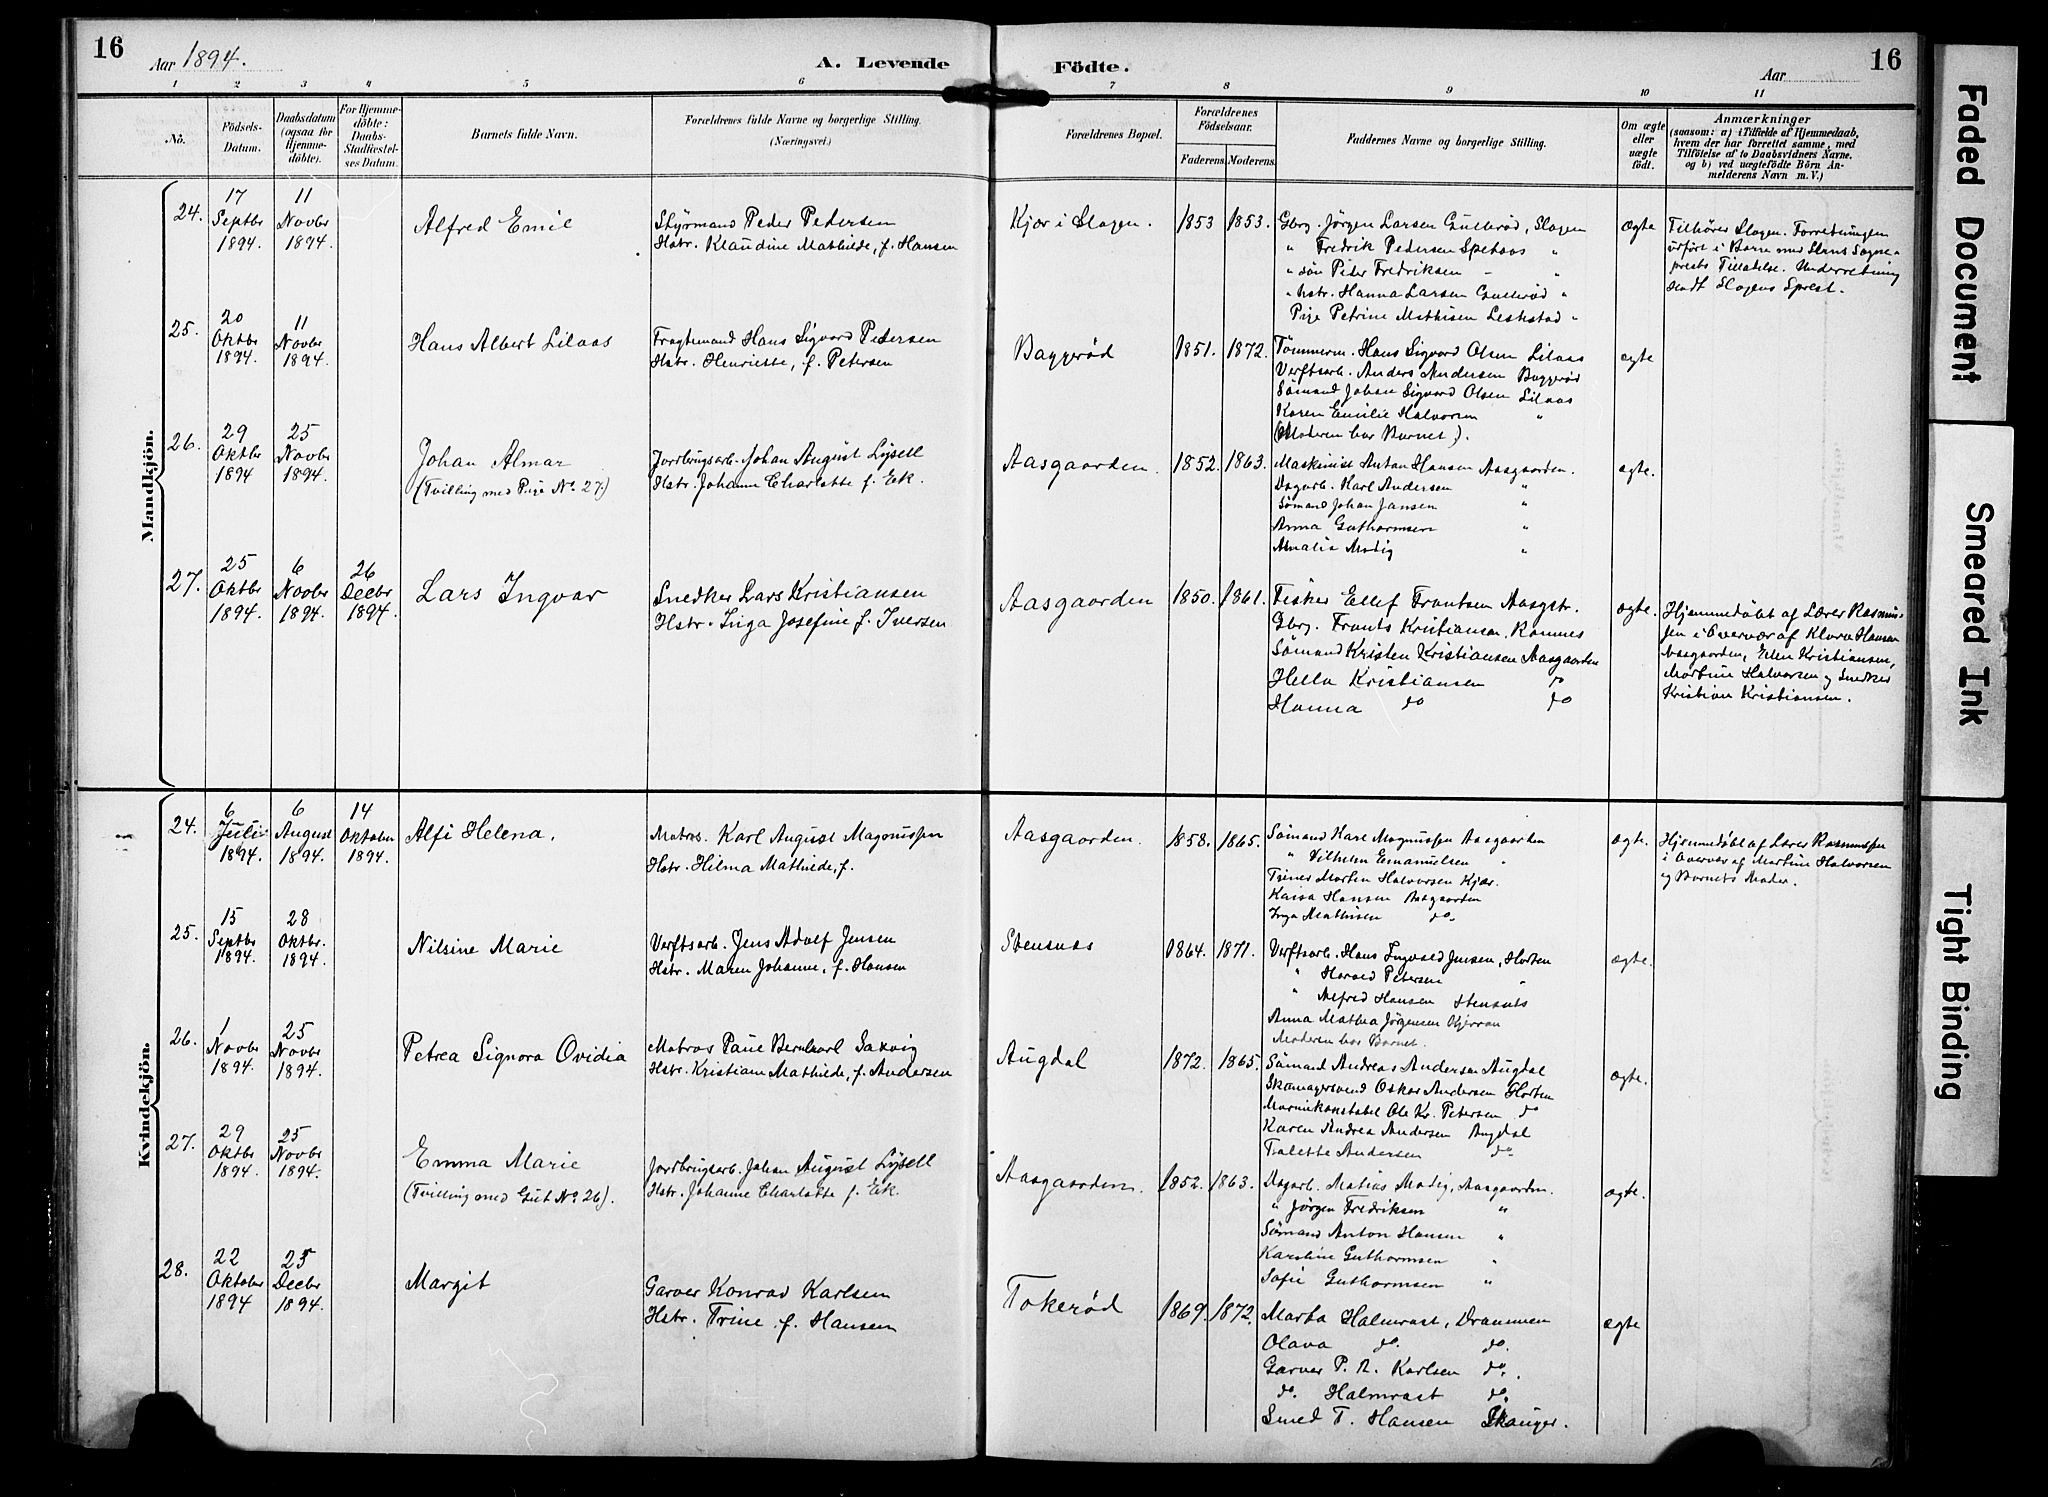 16
Aar 1894.
A. Levende
Födte.
Aar
16
1 2 3 4 5 6 7 8 9 10 11
No.
Födsels-Datum.
Daabsdatum (ogsaa for Hjemmedöbte).
For Hjemmedöbte: Daabs-Stadfæstelses Datum.
Barnets fulde Navn.
Forældrenes fulde Navne og borgerlige Stilling.
(Næringsvei.)
Forældrenes Bopæl.
Forældrenes Födselsaar.
Faderens. Moderens.
Faddernes Navne og borgerlige Stilling.
Om ægte eller uægte födt.
Anmærkninger
(saasom: a) i Tilfælde af Hjemmedaab,
hvem der har forrettet samme, med
Tilföielse af to Daabsvidners Navne,
og b) ved uægtefödte Börn Anmelderens Navn m. V.)
Mandkjön.
24.
17 Septbr 1894.
11 Novbr 1894.
Alfred Emil
Styrmand Peder Pedersen
Hstr. Klaudine Mathilde, f. Hansen
Kjær i Slagen.
1853 1853.
Gbrg. Jörgen Larsen Gulleröd, Slagen
" Fredrik Pedersen Spetaas "
" sön Peder Fredriksen - "
" hstr. Hanna Larsen Gulleröd "
Pige Petrine Mathisen Leskstad "
Ægte
Tilhører Slagen. Forretningen
udført i Borre med Hans Sogne-
prests Tilladelse. Underretning
sendt Slagens Sprest.
25.
20 Oktbr 1894.
11 Novbr 1894.
Hans Albert Lilaas
Fragtemand Hans Sigvard Pedersen
Hstr. Henriette, f. Petersen
Baggerød
1851. 1872.
Tömmerm. Hans Sigvard Olsen Lilaas
Verftsarb. Anders Andersen Baggerød
Sömand Johan Sigvard Olsen Lilaas
Karen Emilie Halvorsen "
(Moderen bar Barnet).
ægte
26.
29 Oktbr 1894
25 Novbr 1894.
Johan Almar
(Tvilling med Pige No. 27)
Jordbrugsarb. Johan August Lysell
Hstr. Johanne Charlotte f. Ek.
Aasgaarden.
1852. 1863.
Maskinist Anton Hansen Aasgaarden.
Dagarb. Karl Andersen "
Sömand Johan Jansen "
Anna Guthormsen "
Amalia Modig "
ægte.
27.
25 Oktbr 1894.
6 Novbr 1894.
26 Decbr 1894.
Lars Ingvar
Snedker Lars Kristiansen
Hstr. Inga Josefine f. Iversen
Aasgaarden
1850. 1861.
Fisker Ellef Frantsen Aasgstr.
Gbrg. Frants Kristiansen, Ramnes
Sömand Kristen Kristiansen Aasgaarden
Hella Kristiansen do
Hanna do do
ægte.
Hjemmedøbt af Lærer Rasmus-
sen i Overvær af Klara Hansen
Aasgaarden, Ellen Kristiansen,
Martine Halvorsen og Snedker
Kristian Kristiansen.
Kvindekjön.
24.
6 Juli 1894.
6 August 1894.
14 Oktober 1894.
Alfi Helena.
Matros. Karl August Magnussen
Hstr. Hilma Mathilde, f.
Aasgaarden.
1858. 1865.
Sömand Karl Magnussen Aasgaarden
" Vilhelm Emanuelsen "
Triner Morten Halvorsen Kjær.
Kaisa Hansen Aasgaarden
Inga Mathisen do.
ægte.
Hjemmedøbt af Lærer Rasmussen
i Overvær af Martine Halvorsen
og Barnets Moder.
25.
15 Septbr 1894.
28 Oktbr. 1894.
Nilsine Marie
Verftsarb. Jens Adolf Jensen
Hstr. Maren Johanne, f. Hansen
Stensnes
1864. 1871.
Verftsarb. Hans Ingvald Jensen, Horten
" Harald Petersen "
" Alfred Hansen Stensnes
Anna Mathea Jörgensen Kjærran
Moderen bar Barnet.
ægte.
26.
1 Novbr 1894.
25 Novbr 1894.
Petrea Signora Ovidia
Matros Paul Bernhard Saxvig
Hstr. Kristiane Mathilde, f. Andersen
Augdal
1872. 1865.
Sömand Andreas Andersen Augdal
Skomagersvend Oskar Andersen Horten
Marinekonstabel Ole Kr. Petersen do
Karen Andrea Andersen Augdal
Tolette Andersen do.
ægte.
27.
29 Oktbr 1894.
25 Novbr 1894.
Emma Marie
(Tvilling med Gut No. 26).
Jordbrugsarb. Johan August Lysell
Hstr. Johanne Charlotte f. Ek.
Aasgaarden.
1852. 1863.
Dagarb. Matias Modig, Aasgaarden.
" Jørgen Fredriksen "
Sömand Anton Hansen "
Karoline Guthormsen "
Sofie Guthormsen "
ægte.
28.
22 Oktober 1894
25 Decbr 1894.
Margit
Garver Konrad Karlsen
Hstr. Trine f. Hansen
Tokerød
1869. 1872.
Marta Halmrast, Drammen
Olava do. do.
Garver P. A. Karlsen do.
do. Halmrast do.
Smed T. Hansen Skauger.
ægte
Faded Document
Smeared Ink
Tight Binding